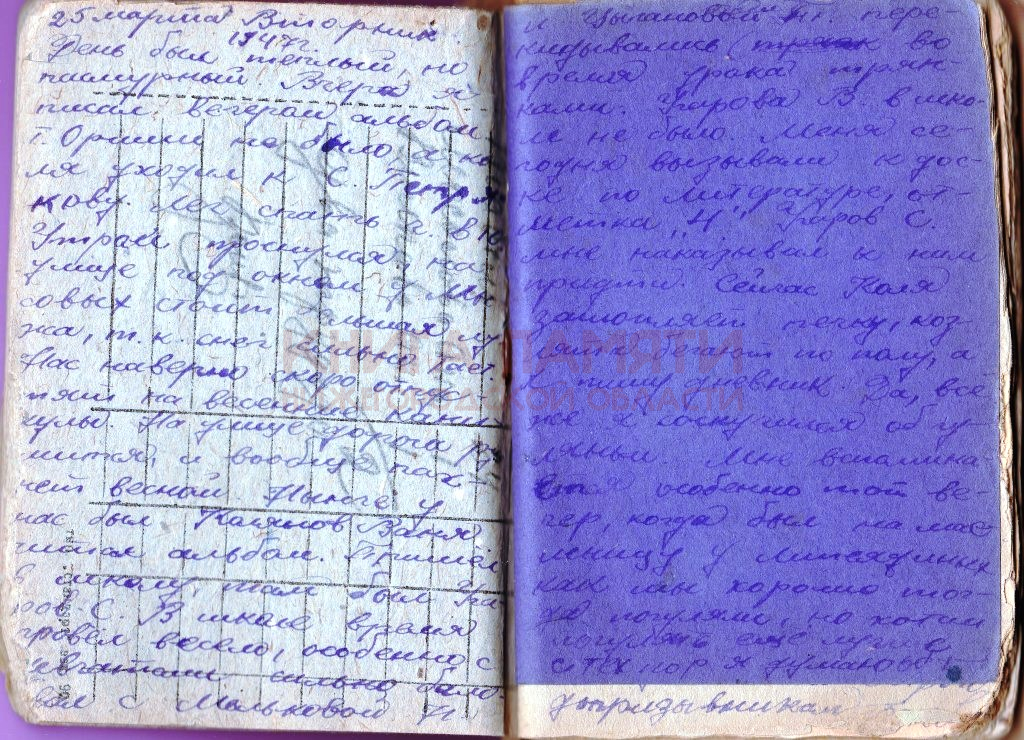 25 марта Вторник.
1947 г.
День был теплый, но
пасмурный. Вчера я
писал вечером альбом
Т. Оришин не было, а Ко
ля уходил к С. Петря
кову. Лег спать г. в 10.
Утрам проснулся, на
улице под окном у Мы
совых стоит большая лу
жа, т. к. снег сильно тает.
Нас наверно скоро отпус-
тят на весенние кани
кулы. На улице дорога
и вообще пах-
нет весной. Нынче у
нас был Ваня,
читал альбом. Пришел
в школу, там был Уга
ров С. В школе время
провел весело, особенно с
девчатами, сильно бало-
вал с Мальковой Л
и Цыгановой Т. пере-
кидывались во
время урока тряп-
ками. Угарова В. в шко-
ле не было. Меня се-
годня вызывали к дос-
ке по литературе, от-
метка „4". Угаров С.
мне наказывал к ним
придти. Сейчас Коля
затопляет печку, коз-
лята бегают по полу, а
я пишу дневник. Да, все
же я соскучился об гу
ляньи. Мне вспомина
ется особенно тот ве-
чер, когда был на мас
леницу у
как мы хорошо тог-
да погуляли, но хотим
погулять ещё лучше
с тех пор я думаю об
КНИГА ПАМЯТИ
НИЖЕГОРОДСКОЙ ОБЛАСТИ